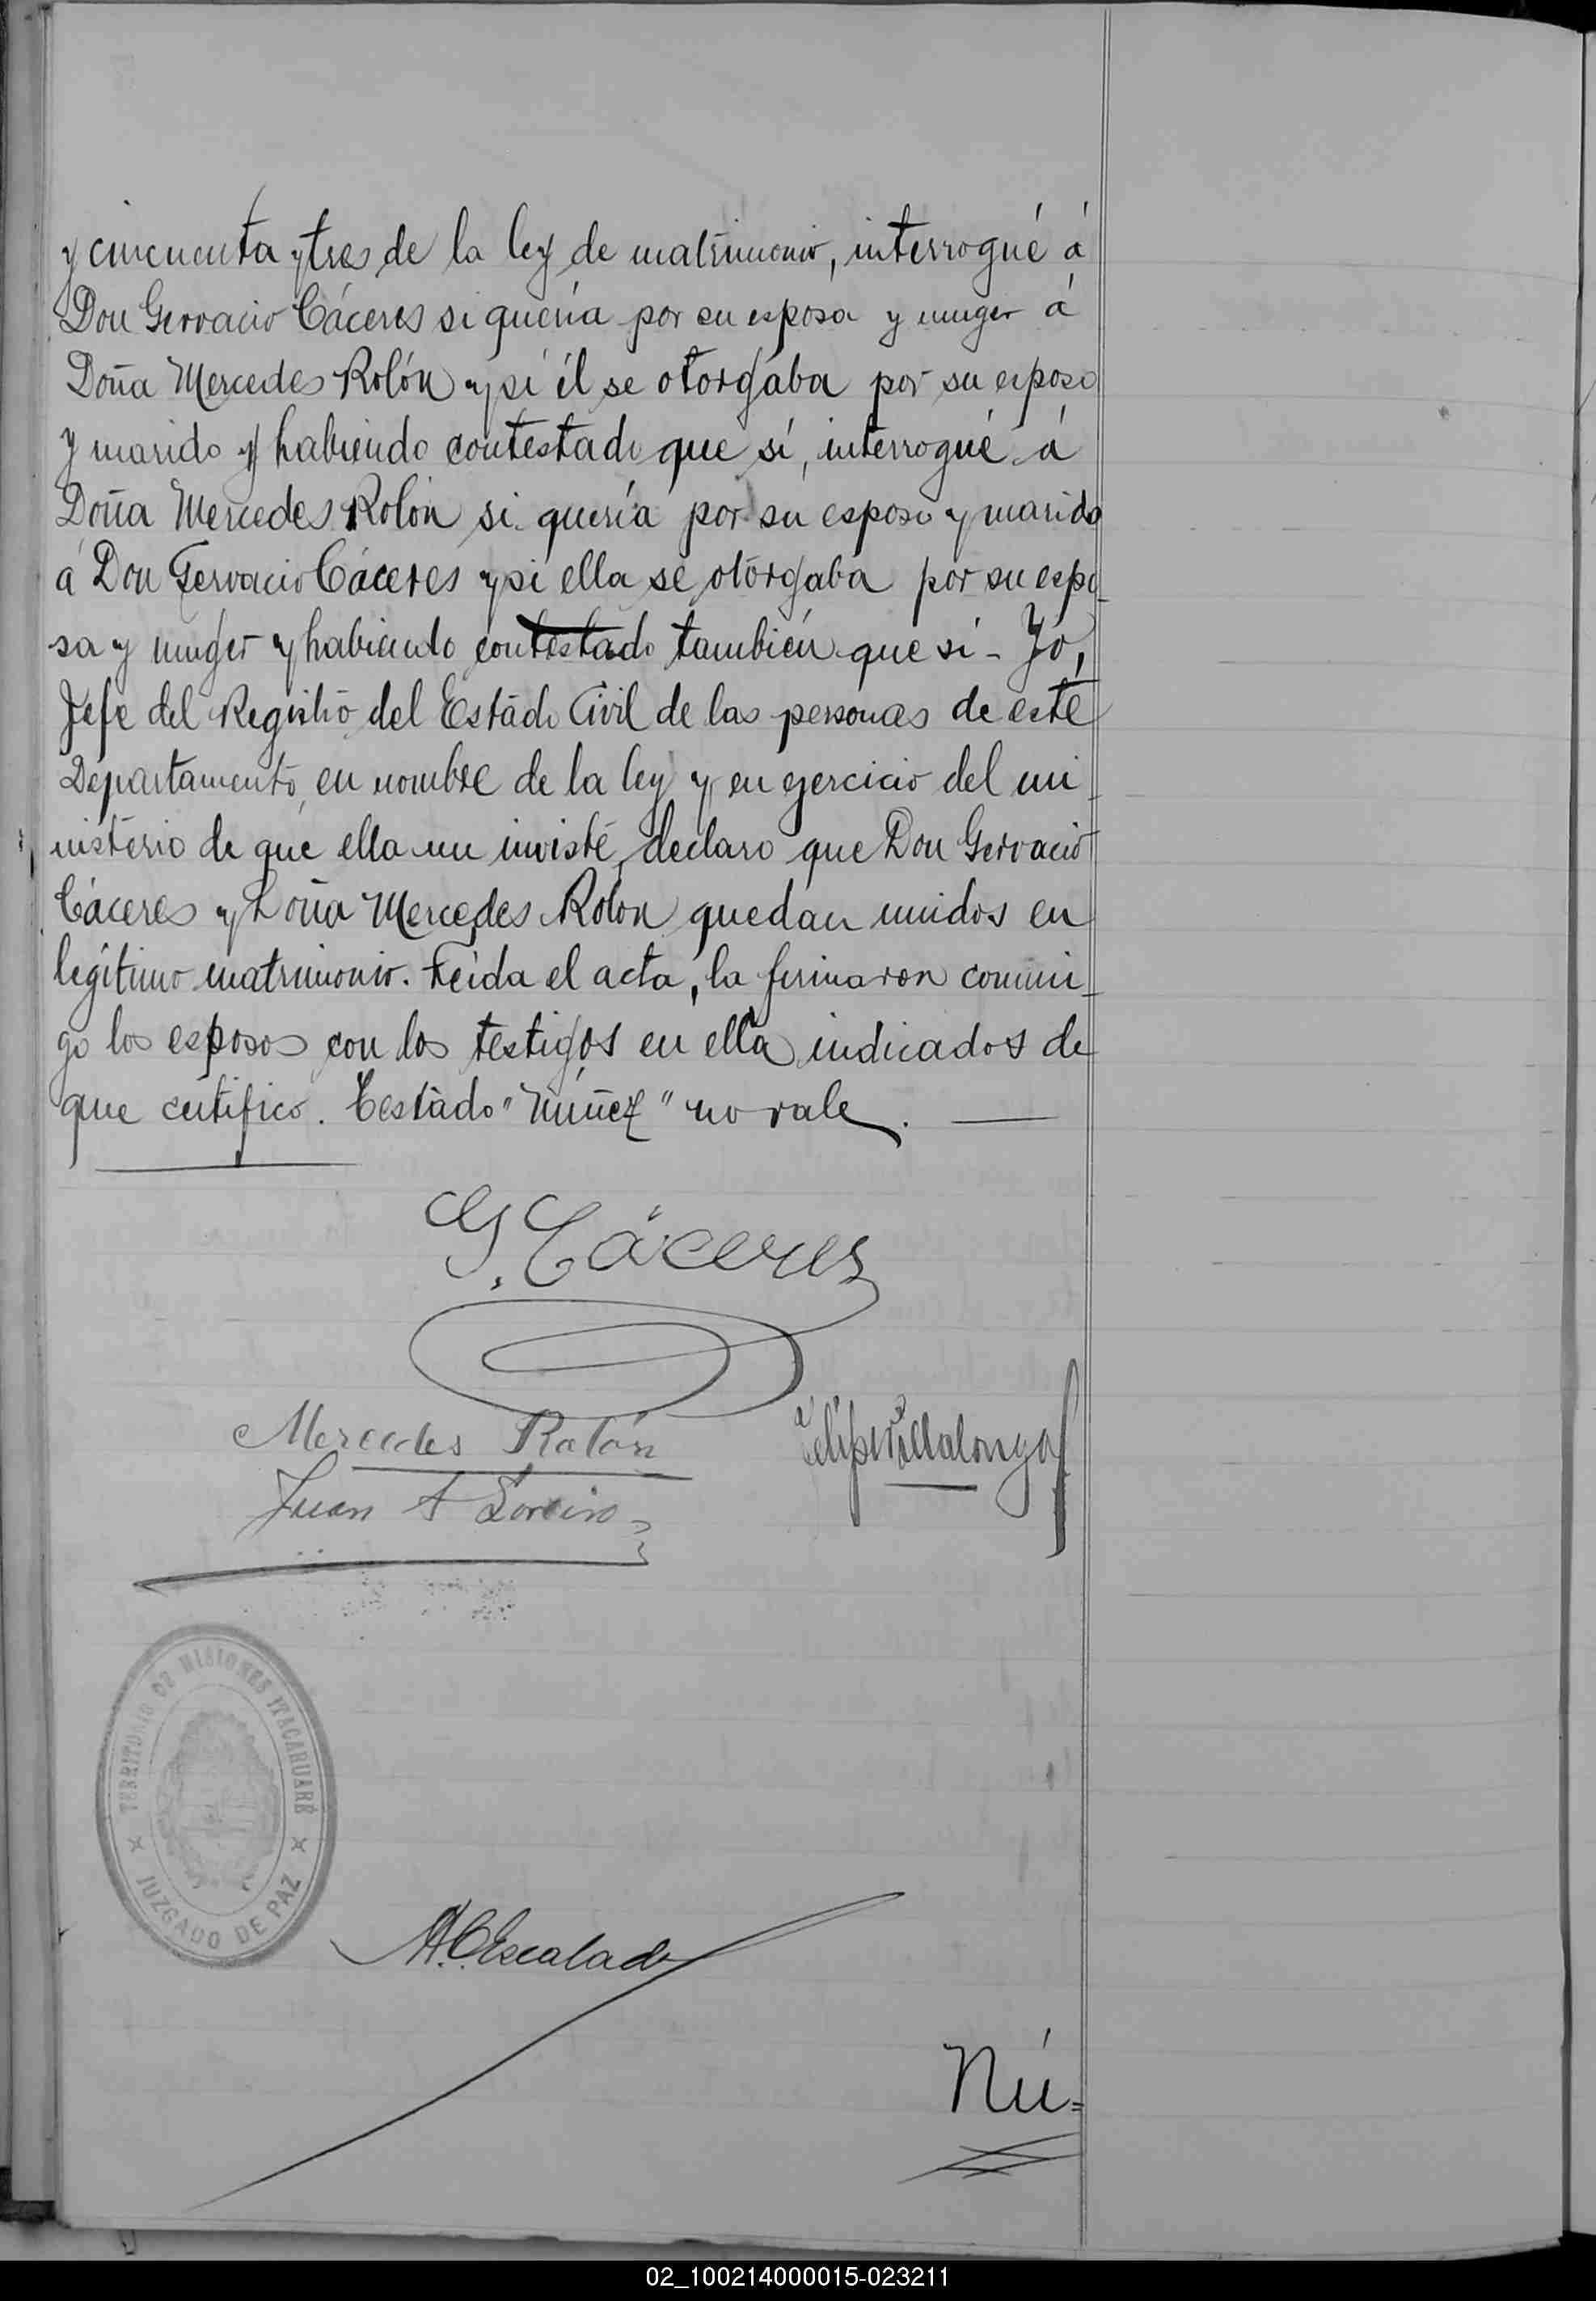 y cincuenta y tres de la ley de matrimonio, interrogué á
Don Gervacio Cáceres si quería por su esposa y muger á
Doña Mercedes Rolón y si él se otorgaba por su esposo
y marido y habiendo contestado que sí, interrogué á
Doña Mercedes Rolón si quería por su esposo y marido
á Don Gervacio Cáceres y si ella se otorgaba por su espo-
sa y muger y habiendo contestado también que sí - Yo,
Jefe del Registro del Estado Civil de las personas de este
Departamento, en nombre de la ley y en ejercicio del mi-
nisterio de que ella me inviste, declaro que Don Gervacio
Cáceres y Doña Mercedes Rolon quedan unidos en
legítimo matrimonio. Leida el acta, la firmaron conmi-
go los esposos con los testigos en ella indicados de
que certifico. Testado "Núñez" no vale.
G. Cáceres
Mercedes Rolón
Felipe Villalonga
Juan A Loreiro
TERRITORIO DE MISIONES ITACARUARÉ
JUZGADO DE PAZ
A. C. Escalada
Nú=
02_100214000015-023211